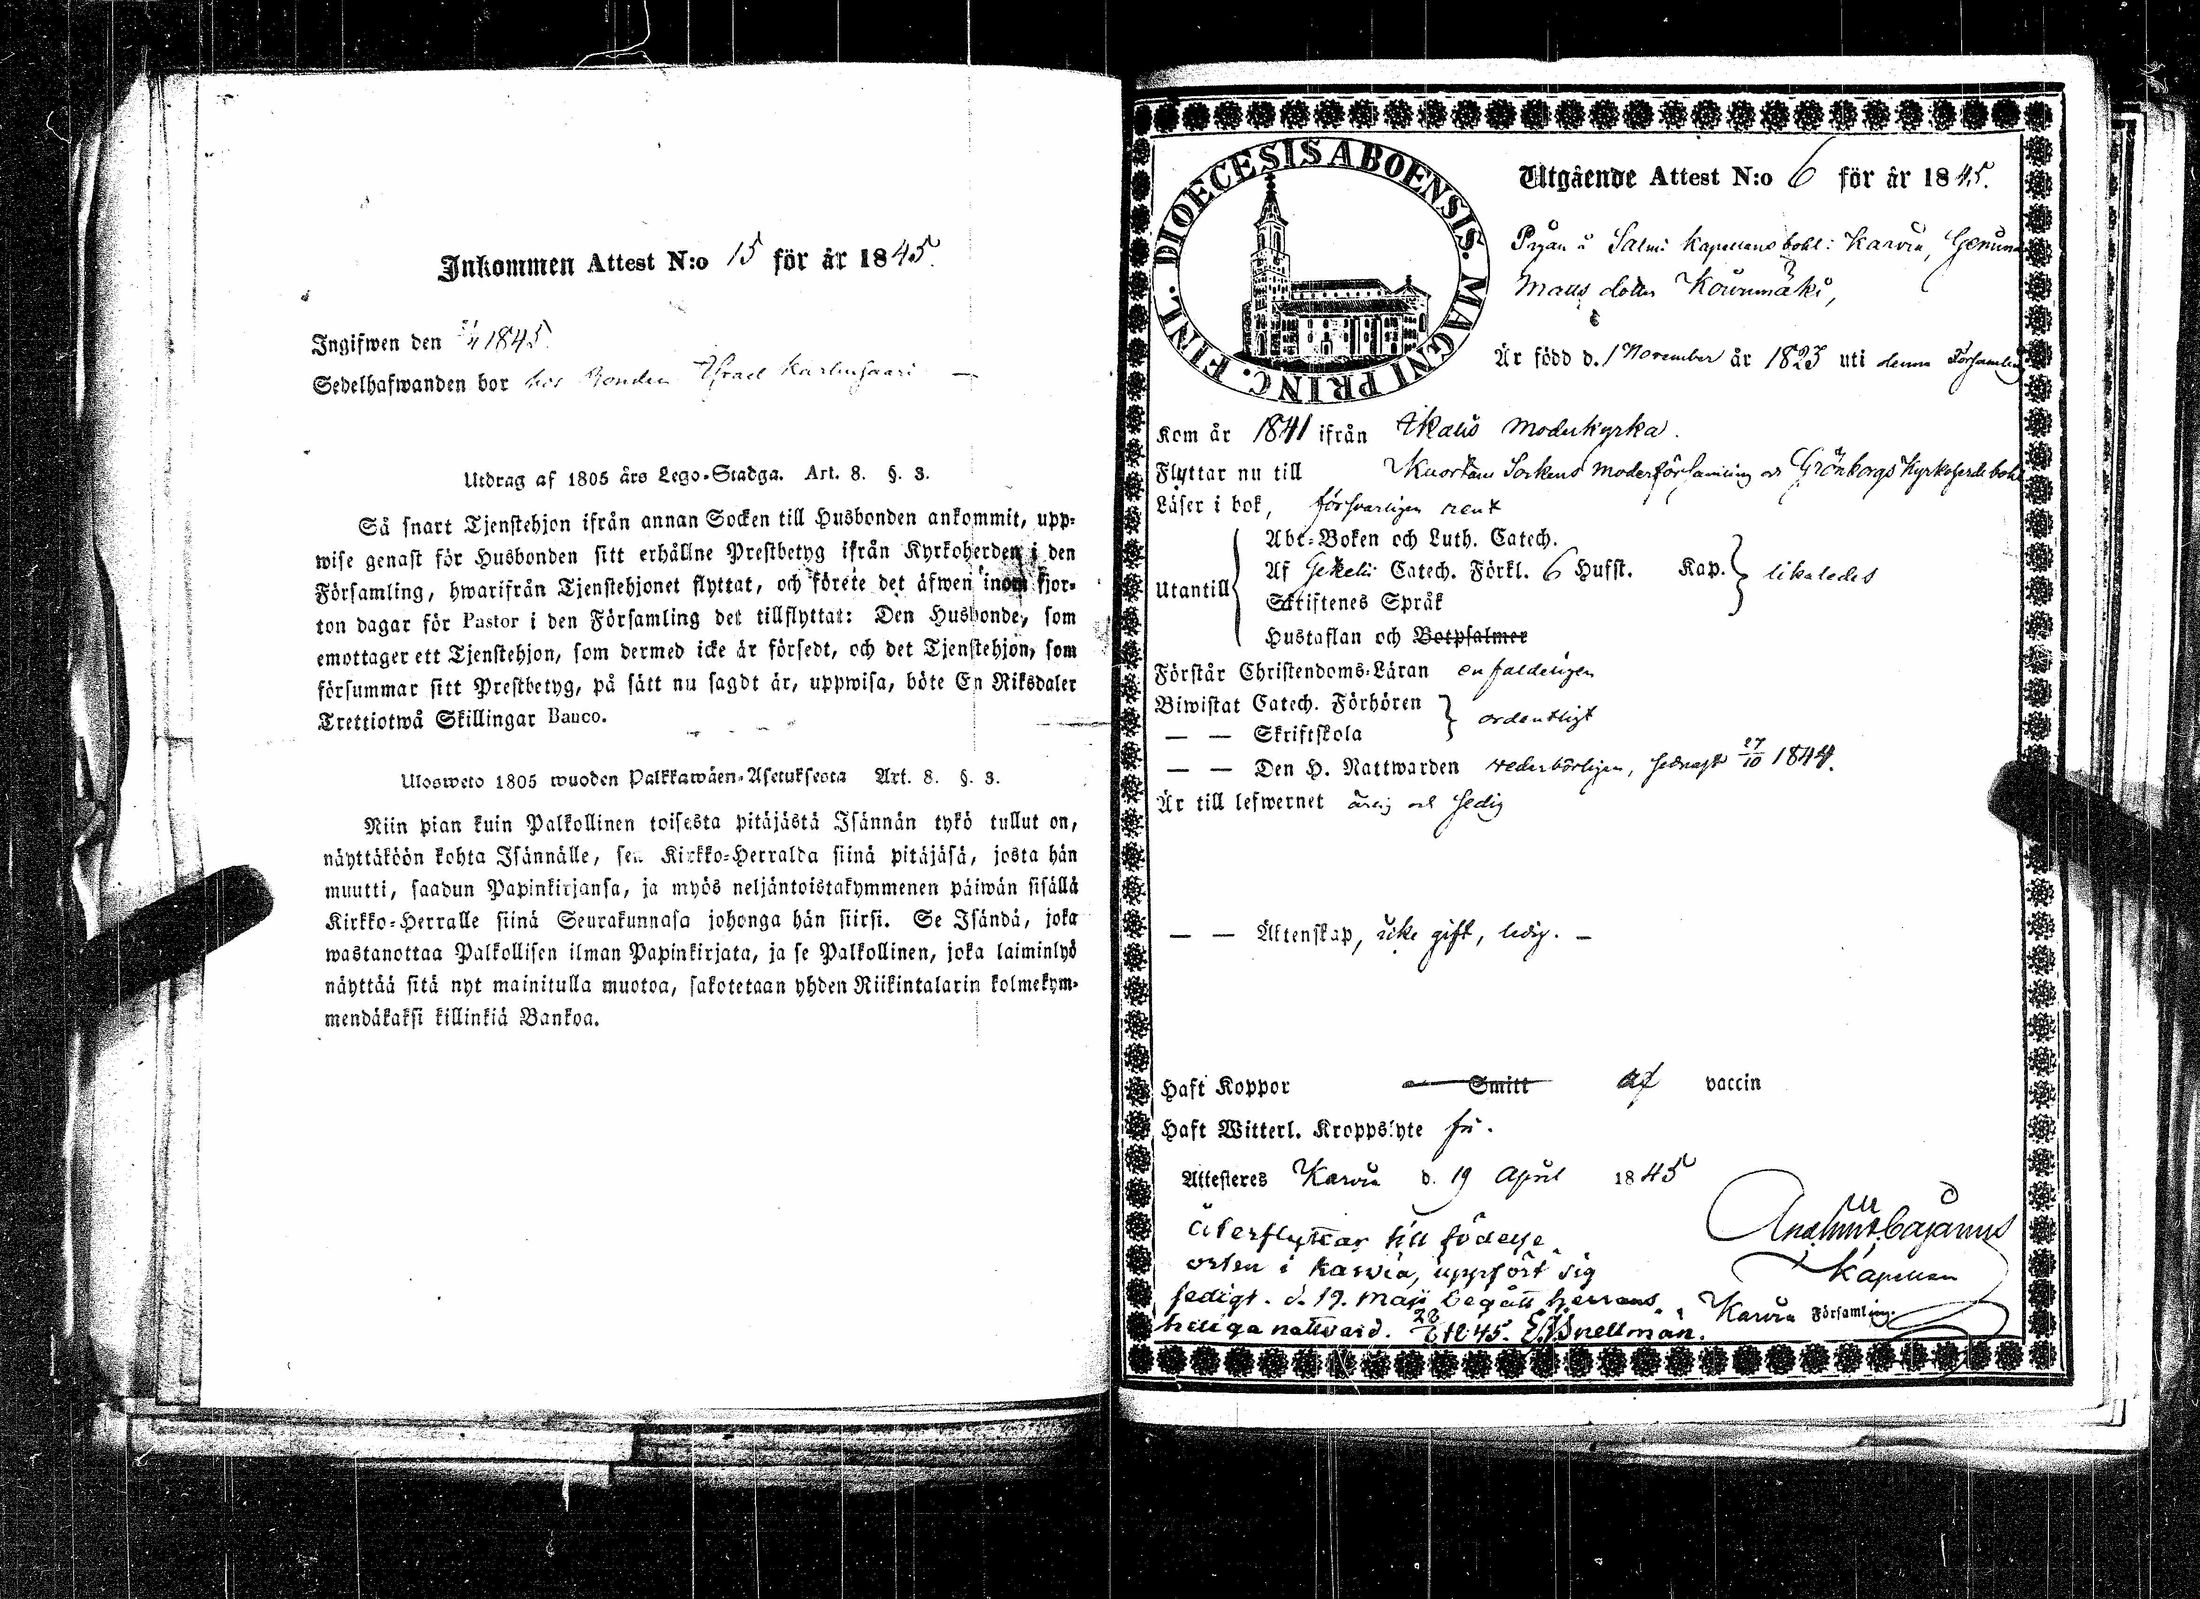 Inkommen Attest N:o 15 för år 1845.
Ingifwen den 1845.
Sedelhafwanden bor hos Bonden Israel
Utdrag af 1805 års Lego-Stadga. Art. 8. §. 3.
Så snart Tjenstehjon ifrån annan Socken till Husbonden ankommit, upp-
wise genast för Husbonden sitt erhållne Prestbetyg ifrån Kyrkoherden i den
Församling, hwarifrån Tjenstehjonet flyttat, och förete det äfwen inom fjor-
ton dagar för Pastor i den Församling det tillflyttat: Den Husbonde, som
emottager ett Tjenstehjon, som dermed icke är försedt, och det Tjenstehjon, som
försummar sitt Prestbetyg, på sätt nu sagdt är, uppwisa, böte En Riksdaler
Trettiotwå Skillingar Banco.
Ulosweto 1805 wuoden Palkkawäen-Asetuksesta Art. 8. §. 3.
Niin pian kuin Palkollinen toisesta pitäjästä Isännän tykö tullut on,
näyttäköön kohta Isännälle, sen Kirkko-Herralda siinä pitäjäsä, josta hän
muutti, saadun Papinkirjansa, ja myös neljäntoistakymmenen päiwän sisällä
Kirkko-Herralle siinä Seurakunnasa johonga hän siirsi. Se Isändä, joka
wastanottaa Palkollisen ilman Papinkirjata, ja se Palkollinen, joka laiminlyö
näyttää sitä nyt mainitulla muotoa, sakotetaan yhden Riikintalarin kolmekym-
mendäkaksi killinkiä Bankoa.
DIOECESIS ABOENSIS. MAGNI PRINC. FINL.
Utgående Attest N:o 6 för år 1845.
Pigan å Salmi Kapellans bohl i Karvia,
Matts dotter
Är född d. 1 November år 1823 uti denna Församling
Kom år 1841 ifrån Ikalis Moderkyrka.
Flyttar nu till Kuortane Sockens Moderförsamling och Grönborgs Kyrkoherde bohl
Läser i bok, försvarligen rent
Utantill
Abc-Boken och Luth. Catech.
Af Gezelii Catech. Förkl. 6 Hufst. Kap. likaledes
Skriftenes Språk
Hustaflan och Botpsalmer
Förstår Christendoms-Läran enfaldeligen
Biwistat Catech. Förhören
— — Skriftskola ordentligt
— — Den H. Nattwarden vederbörligen, sednast 27/10 1844.
Är till lefwernet ärlig och sedig
— — Äktenskap, icke gift, ledig. —
Haft Koppor Smitt af vaccin
Haft Witterl. Kroppslyte fri.
Attesteras Karvia d. 19 April 1845
Cajanus
Kapellan
i Karvia Församling.
Återflyttar till födelse
orten i Karvia, uppfört sig
sedigt. d. 19. Maji begått herrans
heliga nattvard. 1845. Snellman.